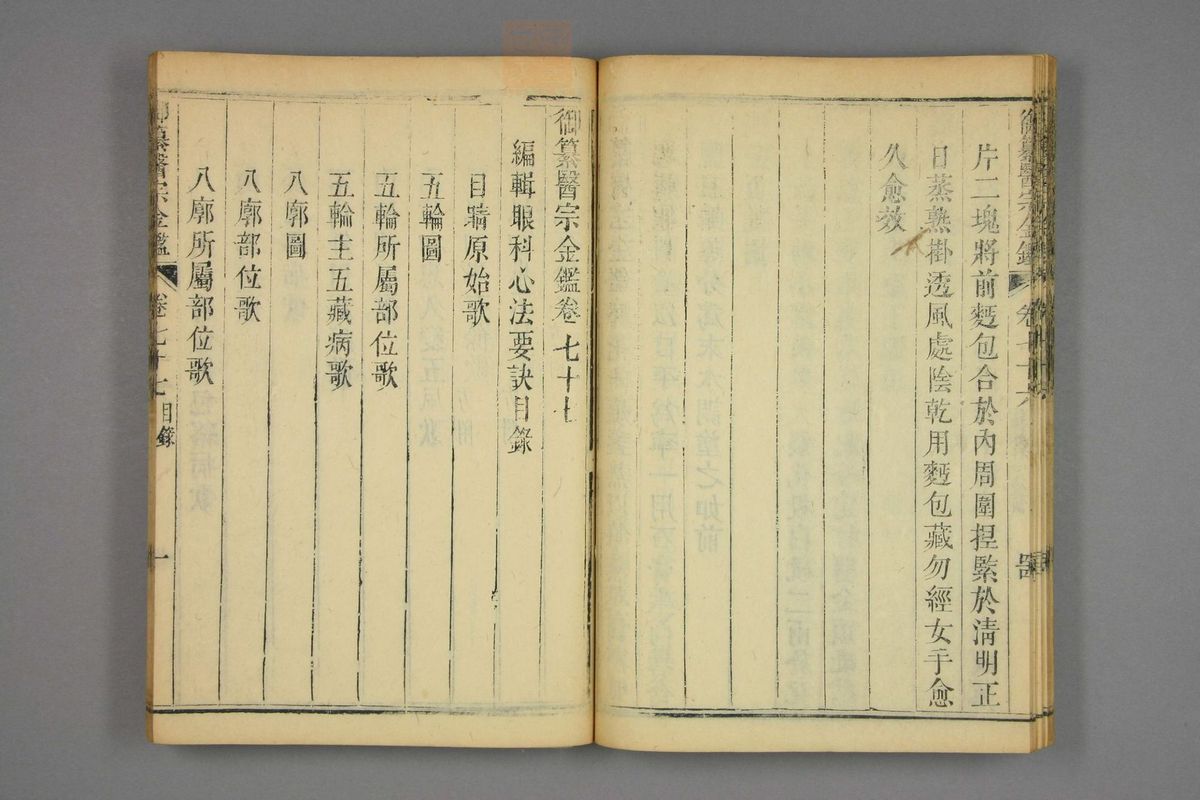 御纂醫宗金鑑 卷七十六
片二塊將前麪包合於內周圍捏緊於清明正
日蒸熟掛透風處陰乾用麪包藏勿經女手愈
久愈效
御纂醫宗金鑑卷七十七
編輯眼科心法要訣目錄
目睛原始歌
五輪圖
五輪所屬部位歌
五輪主五藏病歌
八廓圖
八廓部位歌
八廓所屬部位歌
御纂醫宗金鑑 卷七十七目錄 一